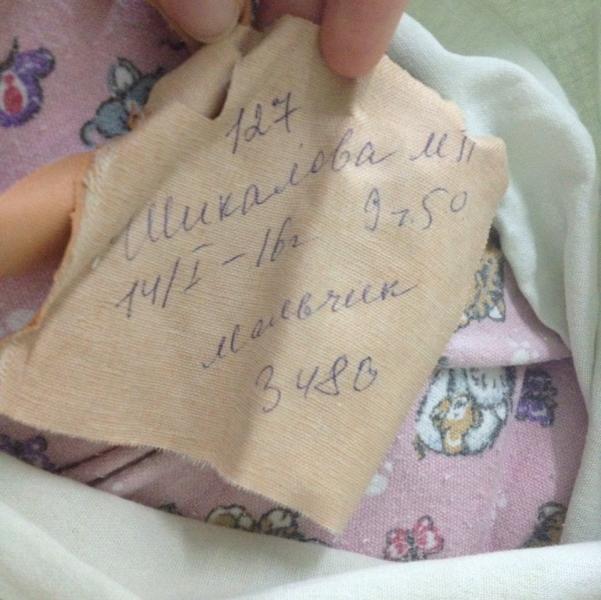 127
Шикалова МП
14/I - 16г 9ч.50
мальчик
3480